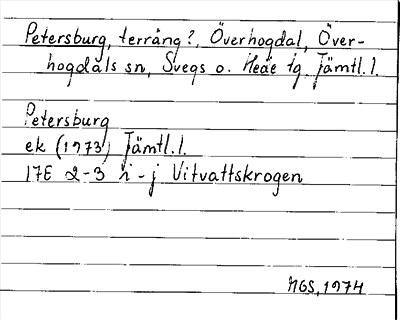 Petersburg, terräng?, Överhogdal, Över-
hogdals sn, Svegs o. Hede tg Jämtl.l.
Petersburg
ek (1973) Jämtl.l.
17E 2-3 i-j Vitvattskrogen
NGS, 1974